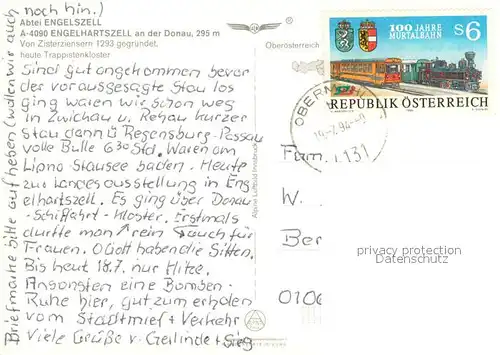 noch hin.)
Abtei ENGELSZELL
A-4090 ENGELHARTSZELL an der Donau, 295 m
Von Zisterziensern 1293 gegründet,
heute Trappistenkloster
Oberösterreich
Sind gut angekommen bevor
der vorausgesagte Stau los
ging waren wir schon weg
in Zwickau u. Rehau kurzer
Stau dann ü Regensburg-Passau
volle Bulle 6 30 Std. Waren am
Stausee baden. Heute
zur Landesausstellung in Eng
elhartszell. Es ging über Donau
-Schiffahrt-Kloster. Erstmals
durfte man rein Tauch für
Frauen. O Gott haben die Sitten.
Bis heut 18.7. nur Hitze.
Ansonsten eine Bomben-
Ruhe hier, gut zum erholen
vom Stadtmief + Verkehr
Viele Grüße v. Gerlinde + Sieg
Briefmarke bitte aufheben (wollen wir auch
Alpine Luftbild Innsbruck
100 JAHRE
MURTALBAHN
S6
REPUBLIK ÖSTERREICH
OBERM
131
Fam.
W.
Ber
0106
privacy protection
Datenschutz